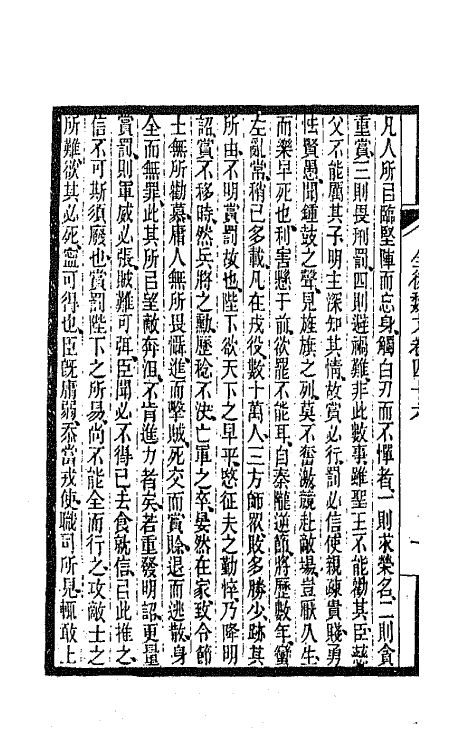 凡人所㠯臨堅陣而忘身、觸白刃而不憚者、一則求榮名、二則貪
重賞、三則畏刑罰、四則避禍難、非此數事、雖聖王不能勸其臣、慈
父不能厲其子、明主深知其情、故賞必行、罰必信、使親疎貴賤、勇
怯賢愚、聞鍾鼓之聲、見旌旗之列、莫不奮激、競赴敵場、豈厭久生
而樂早死也、利害懸于前、欲罷不能耳、自秦隴逆節、將歷數年、蠻
左亂常、稍已多載、凡在戎役、數十萬人、三方師眾、敗多勝少、跡其
所由、不明賞罰故也、陛下欲天下之早平、愍征夫之勤悴、乃降明
詔、賞不移時、然兵將之勳、歷稔不決、亡軍之卒、晏然在家、致令節
士無所勸慕、庸人無所畏懾、進而擊賊、死交而賞賒、退而逃散、身
全而無罪、此其所㠯望敵奔沮、不肯進力者矣、若重發明詔、更量
賞罰、則軍威必張、賊難可弭、臣聞必不得已、去食就信、㠯此推之、
信不可斯須廢也、賞罰陛下之所易、尚不能全而行之、攻敵士之
所難、欲其必死、寧可得也、臣既庸弱、忝當戎使、職司所見、輒敢上
全後魏文卷四十六